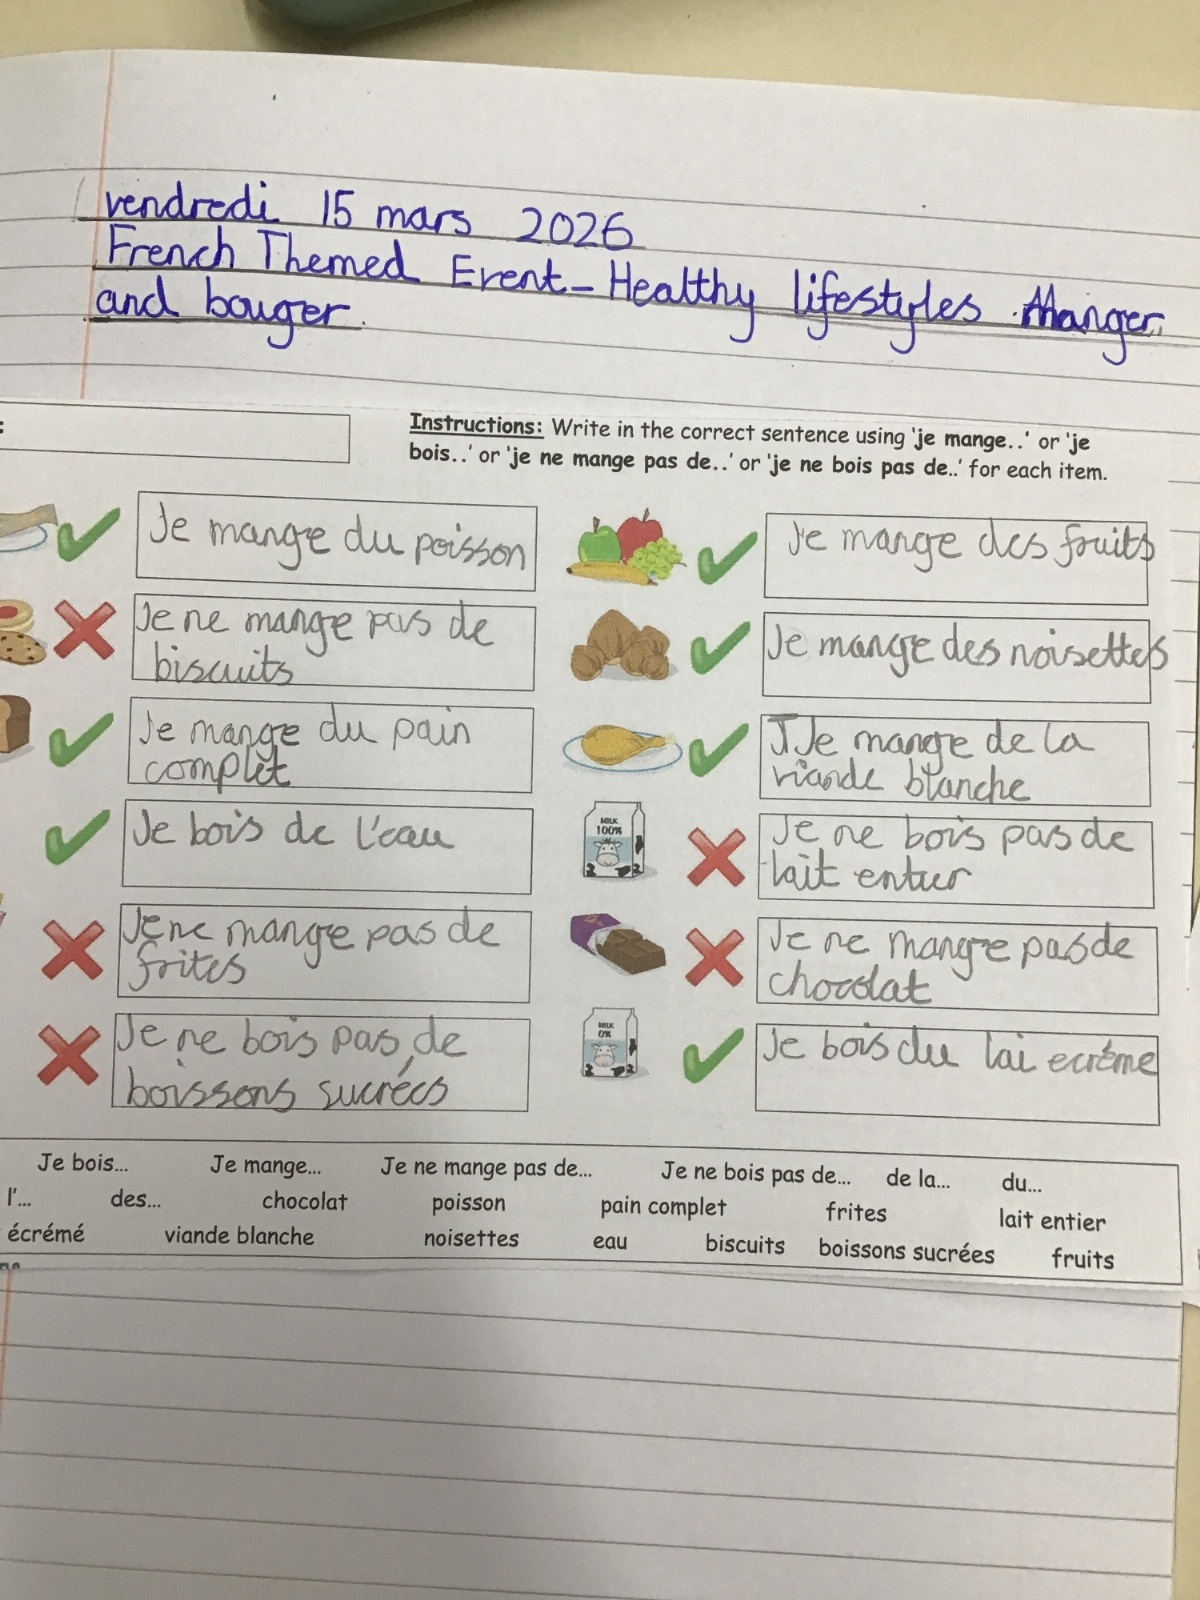 vendredi 15 mars 2026
French Themed Event - Healthy lifestyles Manger
and bouger.
:
Instructions: Write in the correct sentence using 'je mange..' or 'je
bois..' or 'je ne mange pas de..' or 'je ne bois pas de..' for each item.
Je mange du poisson
Je mange des fruits
Je ne mange pas de
biscuits
Je mange des noisettes
Je mange du pain
complet
J Je mange de la
viande blanche
Je bois de l'eau
MILK
100%
Je ne bois pas de
lait entier
Je ne mange pas de
frites
Je ne mange pas de
chocolat
Je ne bois pas de
boissons sucrées
MILK
0%
Je bois du lai ecréme
Je bois... Je mange... Je ne mange pas de... Je ne bois pas de... de la... du...
l'... des... chocolat poisson pain complet frites lait entier
écrémé viande blanche noisettes eau biscuits boissons sucrées fruits